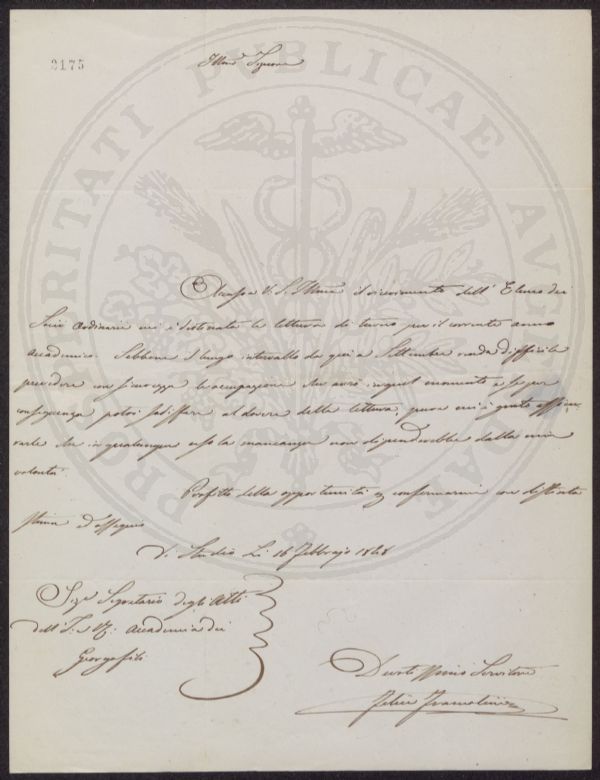 2175
Illmo Signore
PROSPERITATI PVBLICAE AVGENDAE
V. S. Illma il ricevimento dell' Elenco dei
Soci Ordinarii cui è destinata la lettura di turno per il corrente anno
accademico. Sebbene il lungo intervallo da qui a Settembre renda difficile
prevedere con sicurezza le occupazioni che avrò in quel momento e se per
conseguenza potrò sodisfare al dovere della lettura, pure mi è grato
che in qualunque caso la mancanza non dipenderebbe dalla mia
volontà.
Profitto della opportunità confermarmi con distinta
stima d'ossequio
Di Studio Li 16 Febbrajo 1848
Sigr Segretario degli Atti
dell' I. e R. Accademia dei
Georgofili
Devotissimo Servitore
Felice Francolini